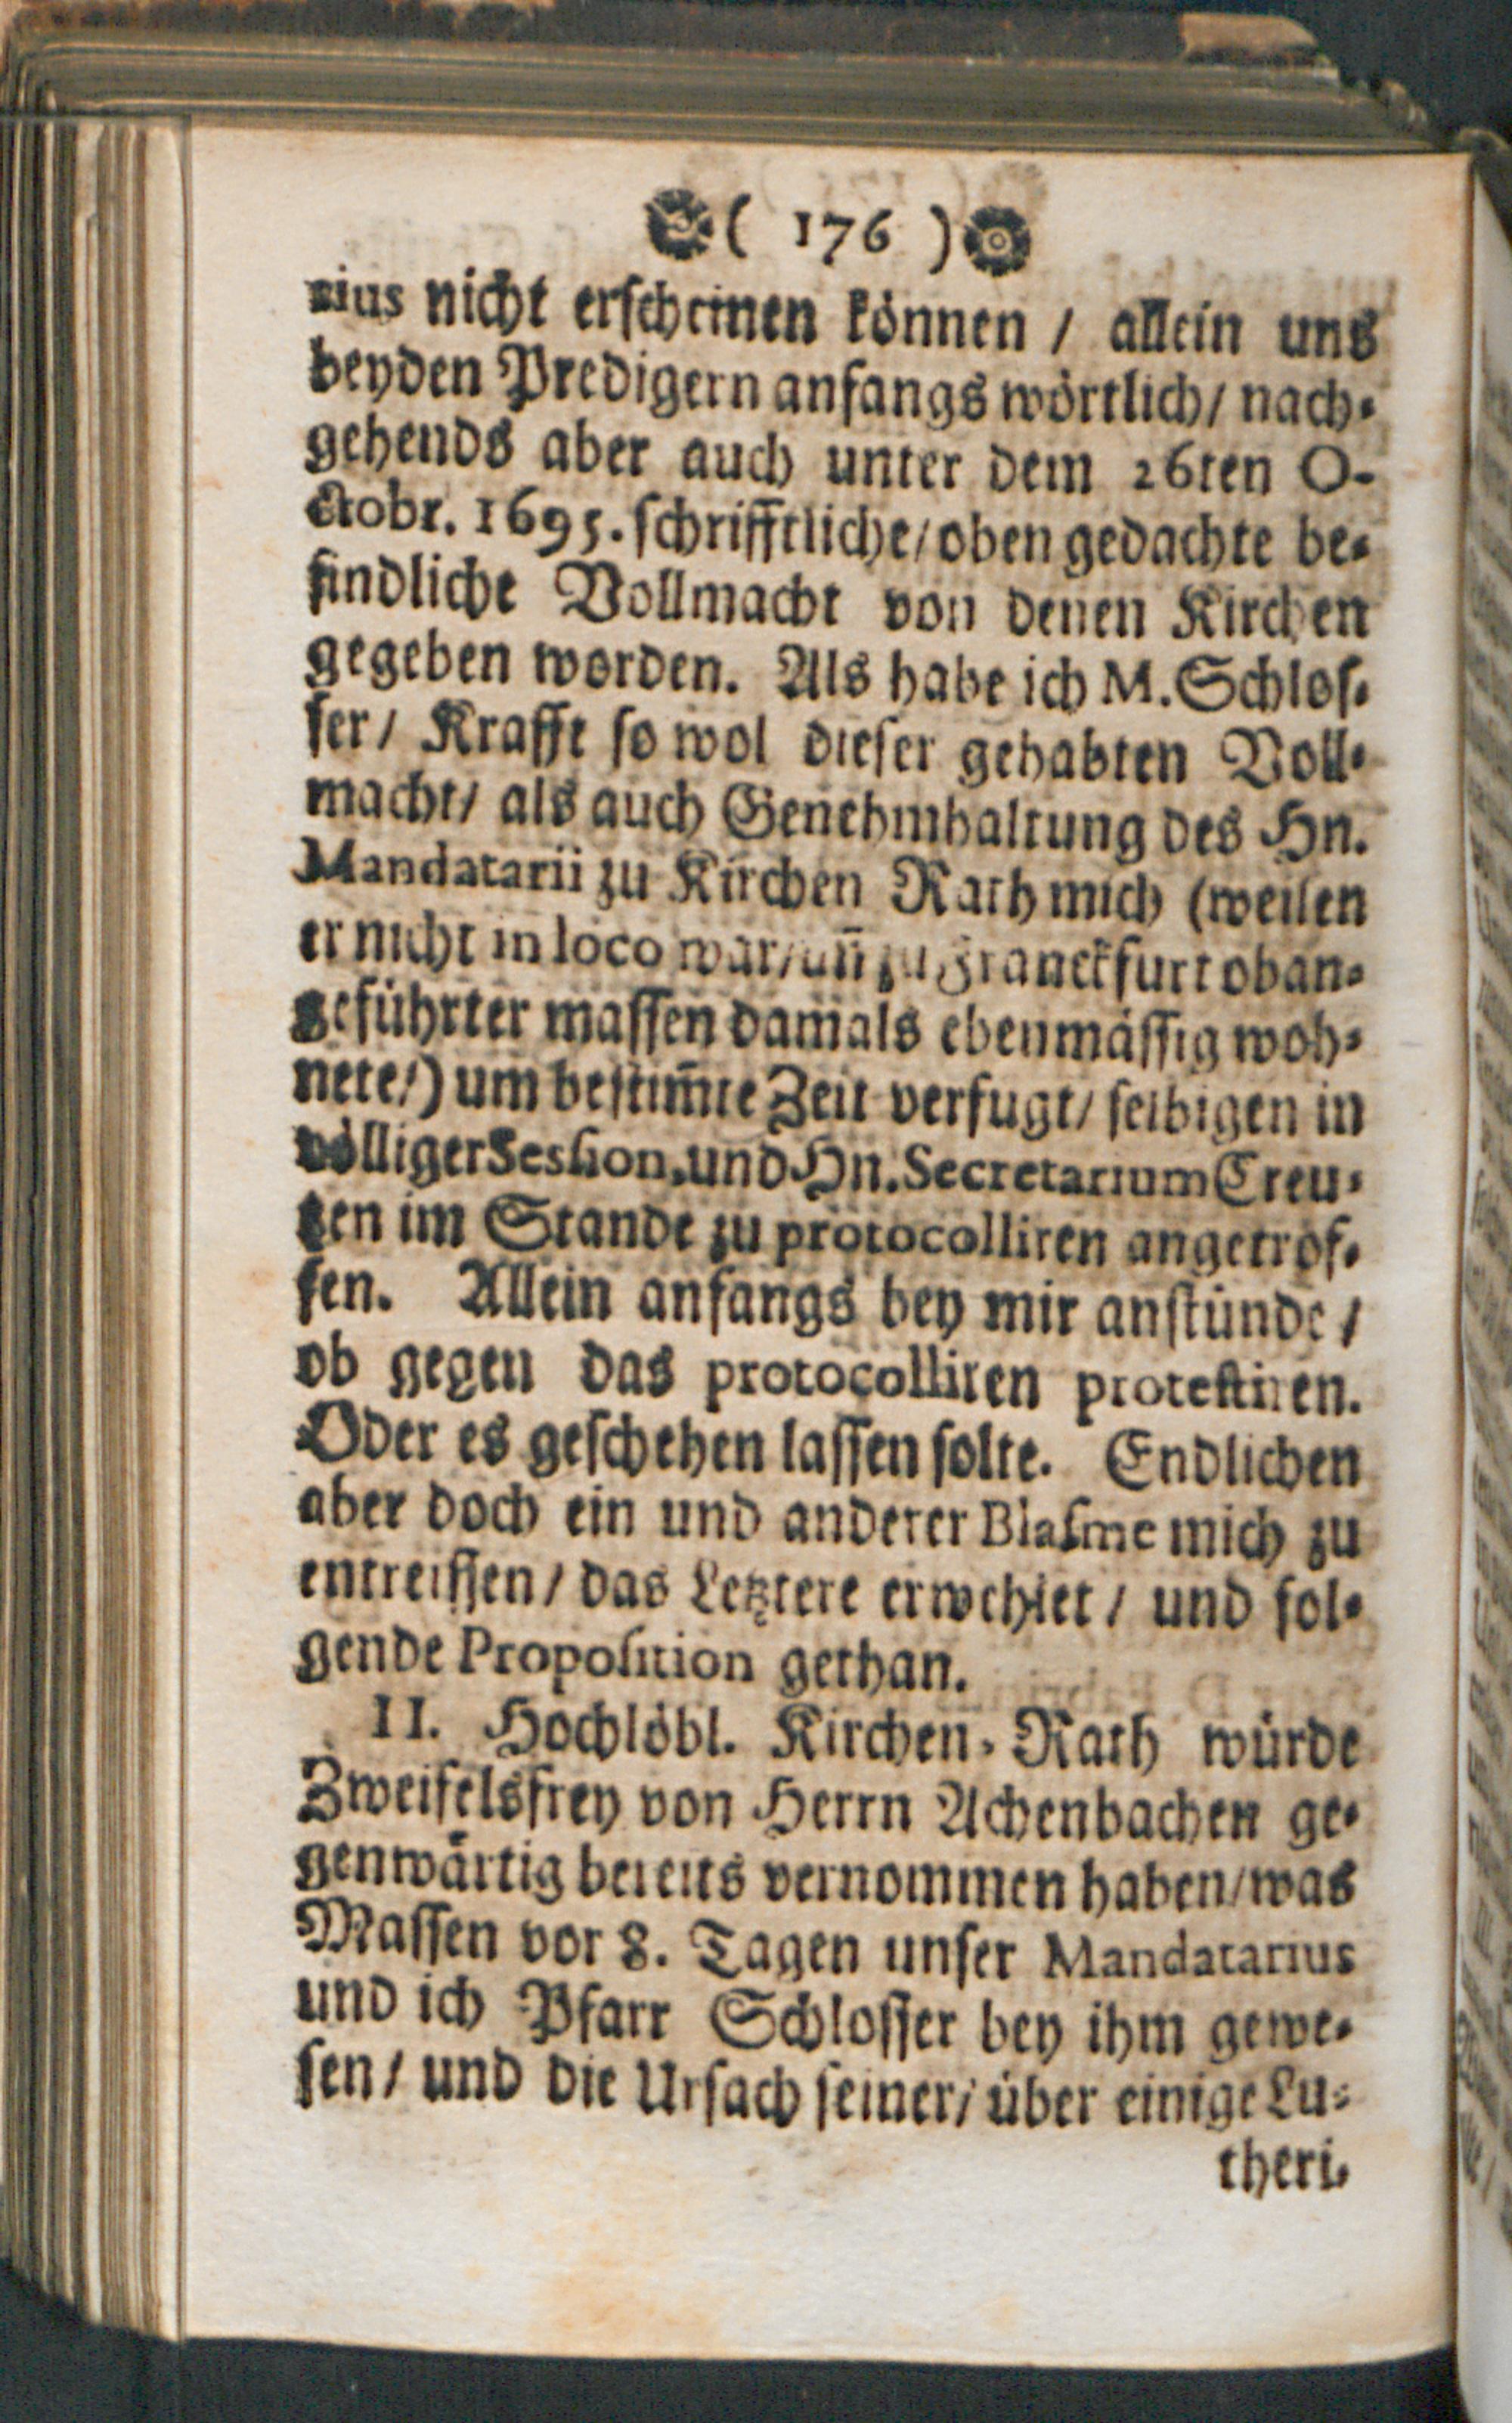 ( 176 )
rius nicht erscheinen können / allein uns
beyden Predigern anfangs wörtlich / nach-
gehends aber auch unter dem 26ten O-
ctobr. 1695. schrifftliche / oben gedachte be-
findliche Vollmacht von denen Kirchen
gegeben worden. Als habe ich M. Schlos-
ser / Krafft so wol dieser gehabten Voll-
macht / als auch Genehmhaltung des Hn.
Mandatarii zu Kirchen Rath mich (weilen
er nicht in loco war / uñ zu Franckfurt oban-
geführter massen damals ebenmässig woh-
nete /) um bestim̃te Zeit verfugt / selbigen in
völliger Session, und Hn. Secretarium Creu-
tzen im Stande zu protocolliren angetrof-
fen. Allein anfangs bey mir anstünde /
ob gegen das protocolliren protestiren.
Oder es geschehen lassen solte. Endlichen
aber doch ein und anderer Blasme mich zu
entreissen / das Letztere erwehlet / und fol-
gende Proposition gethan.
II. Hochlöbl. Kirchen-Rath würde
Zweifelsfrey von Herrn Achenbachen ge-
genwärtig bereits vernommen haben / was
Massen vor 8. Tagen unser Mandatarius
und ich Pfarr Schlosser bey ihm gewe-
sen / und die Ursach seiner / über einige Lu-
theri-